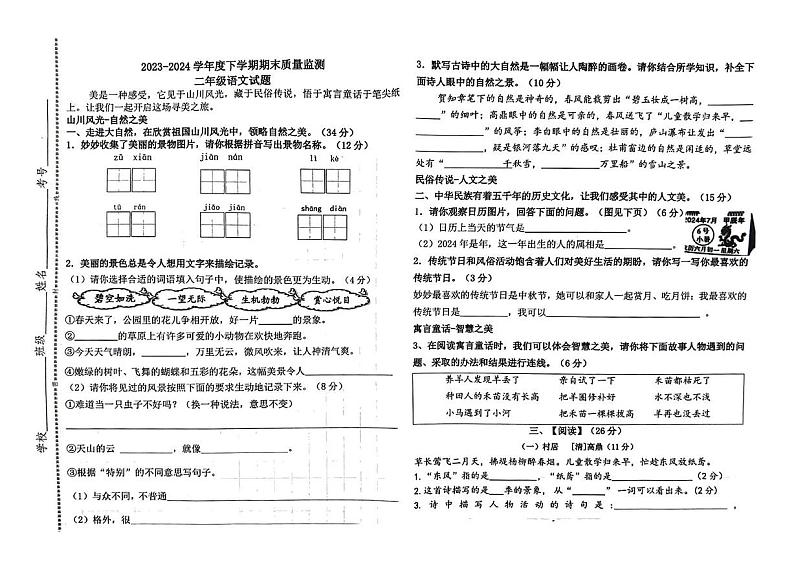 学校
班级
姓名
考号
2023-2024学年度下学期期末质量监测
二年级语文试题
美是一种感受，它见于山川风光，藏于民俗传说，悟于寓言童话于笔尖纸
上。让我们一起开启这场寻美之旅。
山川风光-自然之美
一、走进大自然，在欣赏祖国山川风光中，领略自然之美。（34 分）
1．妙妙收集了美丽的景物图片，请你根据拼音写出景物名称。（12分）
zǔ xiān jiàn nán lì kè
tū rán jiāo jiān shāng diàn
2．美丽的景色总是令人想用文字来描绘记录。
（1）请你选择合适的词语填入句子中，使描绘的景色更为生动。（4分）
碧空如洗 一望无际 生机勃勃 赏心悦目
①春天来了，公园里的花儿争相开放，好一片______的景象。
②______的草原上有许多可爱的小动物在欢快地奔跑。
③今天天气晴朗，______，万里无云，微风吹来，让人神清气爽。
④嫩绿的树叶、飞舞的蝴蝶和五彩的花朵，这幅美景令人______
（2）请你将见过的风景按照下面的要求生动地记录下来。（8分）
①难道当一只虫子不好吗？（换一种说法，意思不变）
②天山的云 ______，就像______。
③根据“特别”的不同意思写句子。
（1）与众不同，不普通______
（2）格外，很______
3．默写古诗中的大自然是一幅幅让人陶醉的画卷。请你结合所学知识，补全下
面诗人眼中的自然之景。（10分）
贺知章笔下的自然是神奇的，春风能裁剪出“碧玉妆成一树高，______
______”的细叶；高鼎眼中的自然是可亲的，春风送飞了“儿童散学归来早，______
______”的风筝；李白眼中的自然是壮丽的，庐山瀑布让发出“______
______，疑是银河落九天”的感叹；杜甫窗边的自然是闲逸的，草堂远
处有“______千秋雪，______万里船”的雪山之景。
民俗传说-人文之美
二、中华民族有着五千年的历史文化，让我们感受其中的人文美。（15分）
1．请你观察日历图片，回答下面的问题。（图见下页）（6分）
2024年7月 甲辰年
6号
小暑
（1）日历上当天的节气是______。
（2）2024年是年，这一年出生的人的属相是______。
2．传统节日和风俗活动饱含着人们对美好生活的期盼，请你写一写你最喜欢的
传统节日。（3分）
妙妙最喜欢的传统节日是中秋节，她可以和家人一起赏月、吃月饼；我最喜欢的
传统节日是______，我可以______。
寓言童话-智慧之美
3、在阅读寓言童话时，我们可以体会智慧之美，请你将下面故事人物遇到的问
题、采取的办法和结果进行连线。（6分）
养羊人发现羊丢了 亲自试了一下 禾苗都枯死了
种田人的禾苗没有长高 把羊圈修补好 水不深也不浅
小马遇到了小河 把禾苗一棵棵拔高 羊再也没丢过
三、【阅读】（26分）
（一）村居 [清]高鼎（11分）
草长莺飞二月天，拂堤杨柳醉春烟。儿童散学归来早，忙趁东风放纸鸢。
1．“东风”指的是______，“纸鸢”指的是______（2分）
2．这首诗描写的是___季的景象，从“______” 一词可以看出来。（2分）
3．诗中描写人物活动的诗句是：______，